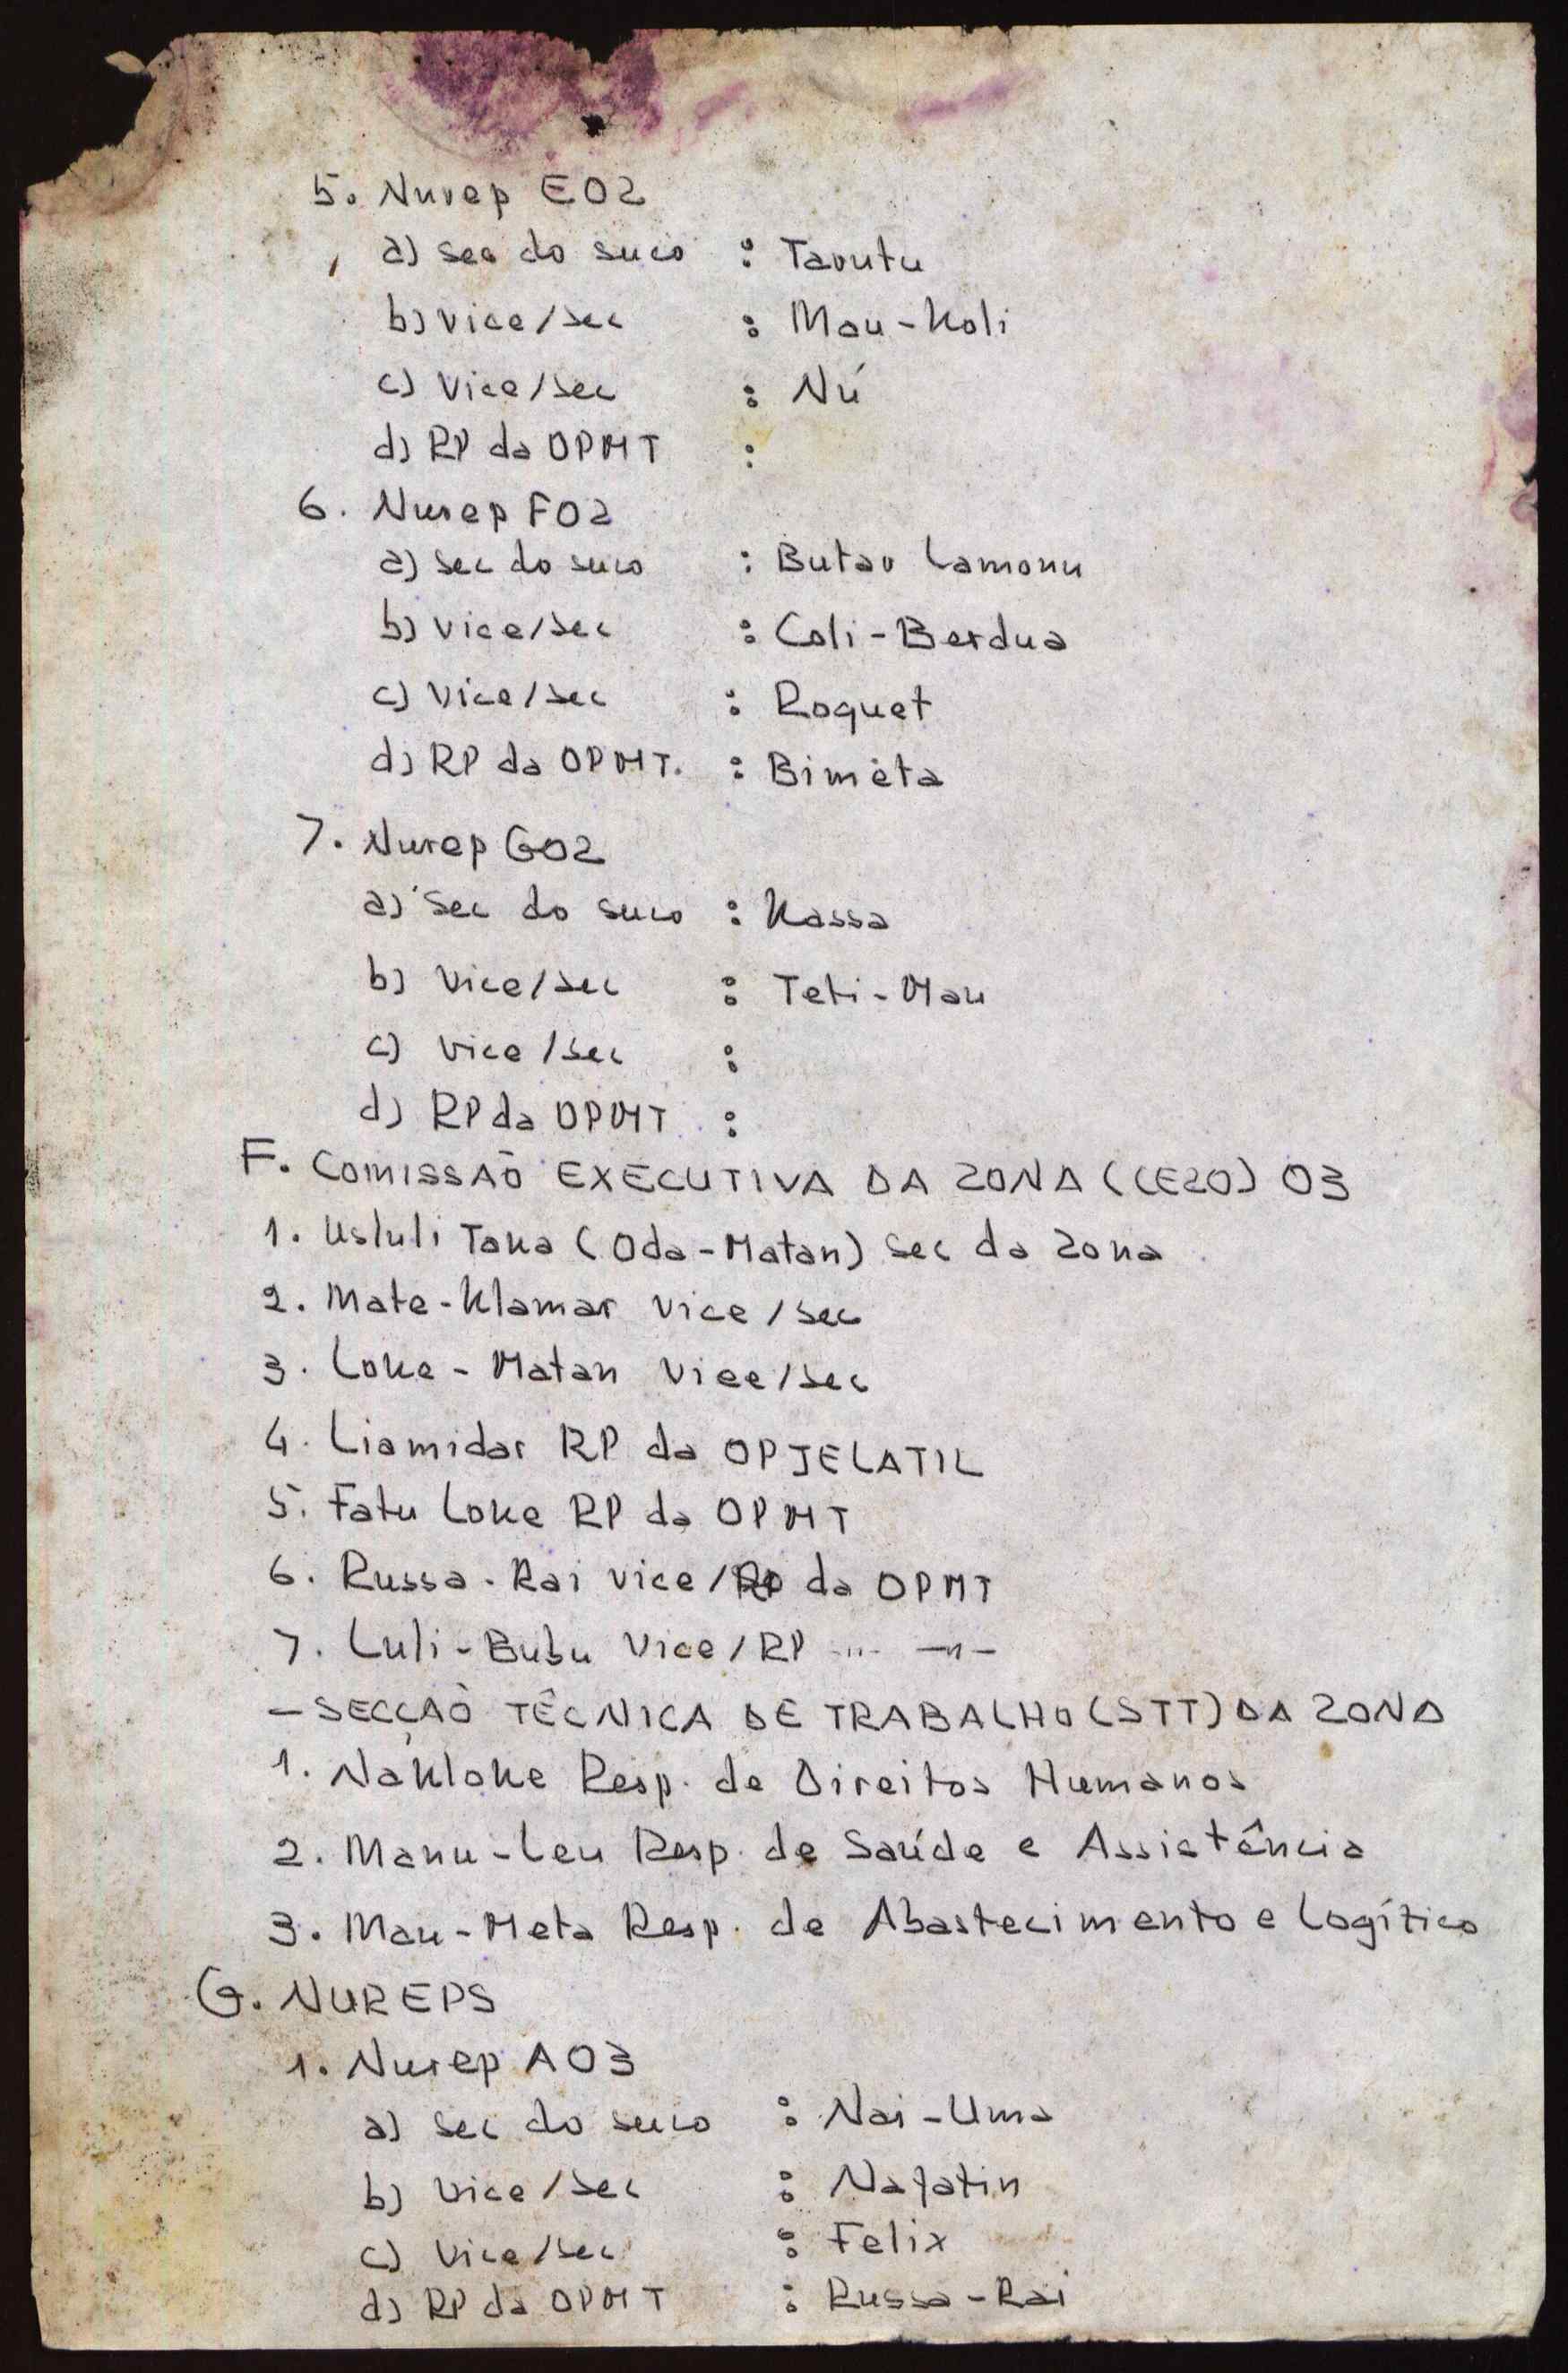 5. Nurep E02
a) sec do suco : Tavutu
b) vice/sec : Mau-Koli
c) Vice/sec : Nú
d) RP da OPMT :
6. Nurep F02
a) sec do suco : Butav Lamonu
b) vice/sec : Coli-Berdua
c) Vice/sec : Roquet
d) RP da OPMT. : Bimèta
7. Nurep G02
a) Sec do suco : Kassa
b) Vice/sec : Teti-Mau
c) vice/sec :
d) RP da OPMT :
F. COMISSÃO EXECUTIVA DA ZONA (CEZO) 03
1. Usluli Taka (Oda-Matan) sec da zona
2. Mate-Klamar vice/sec
3. Loke-Matan Vice/sec
4. Liamidar RP da OPJELATIL
5. Fatu Loke RP da OPMT
6. Russa-Rai vice/RP da OPMT
7. Luli-Bubu Vice/RP -"- -"-
- SECÇÃO TÊCNICA DE TRABALHO (STT) DA ZONA
1. Nakloke Resp. de Direitos Humanos
2. Manu-Leu Resp. de Saúde e Assistência
3. Mau-Meta Resp. de Abastecimento e Logítico
G. NUREPS
1. Nurep A03
a) sec do suco : Nai-Uma
b) vice/sec : Nafatin
c) vice/sec : Felix
d) RP da OPMT : Russa-Rai